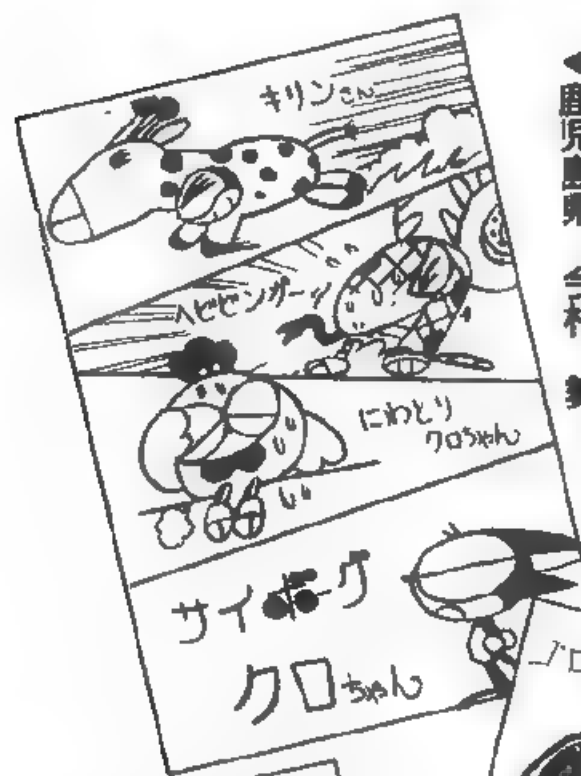 キリンさん
ヘビビンガー!
にわとり
クロちゃん
サイボーグ
クロちゃん
鹿児島県